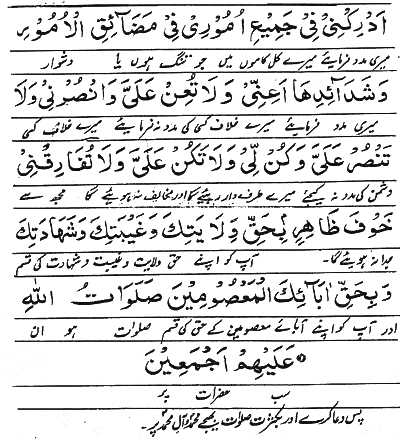 اَدْرِكْنِيْ فِيْ جَمِيْعِ اُمُوْرِيْ فِيْ مَضَآئِقِ الْاُمُوْرِ
میری مدد فرمایئے میرے کل کاموں میں جو تنگ ہوں یا دشوار
وَشَدَآئِدِهَا اَعِنِّيْ وَلَا تُعِنْ عَلَيَّ وَانْصُرْنِيْ وَلَا
میری مدد فرمایئے میرے خلاف کسی کی مدد نہ فرمایئے میرے خلاف کسی
تَنْصُرْ عَلَيَّ وَكُنْ لِيْ وَلَا تَكُنْ عَلَيَّ وَلَا تُفَارِقْنِيْ
دشمن کی مدد نہ کیجئے میرے طرف دار رہیئے گا اور مخالف نہ ہویئے گا مجھ سے
خَوْفَ ظَاهِرٍ بِحَقِّ وَلَايَتِكَ وَغَيْبَتِكَ وَشَهَادَتِكَ
جدا نہ ہویئے گا۔ آپ کو اپنے حق ولایت و غیبت و شہادت کی قسم
وَبِحَقِّ اٰبَآئِكَ الْمَعْصُوْمِيْنَ صَلَوَاتُ اللهِ
اور آپ کو اپنے آبائے معصومین کے حق کی قسم صلوات ہو ان
عَلَيْهِمْ اَجْمَعِيْنَ
سب حضرات پر
پس دعا کرے اور بکثرت صلوات بھیجے محمد و آل محمد پر۔